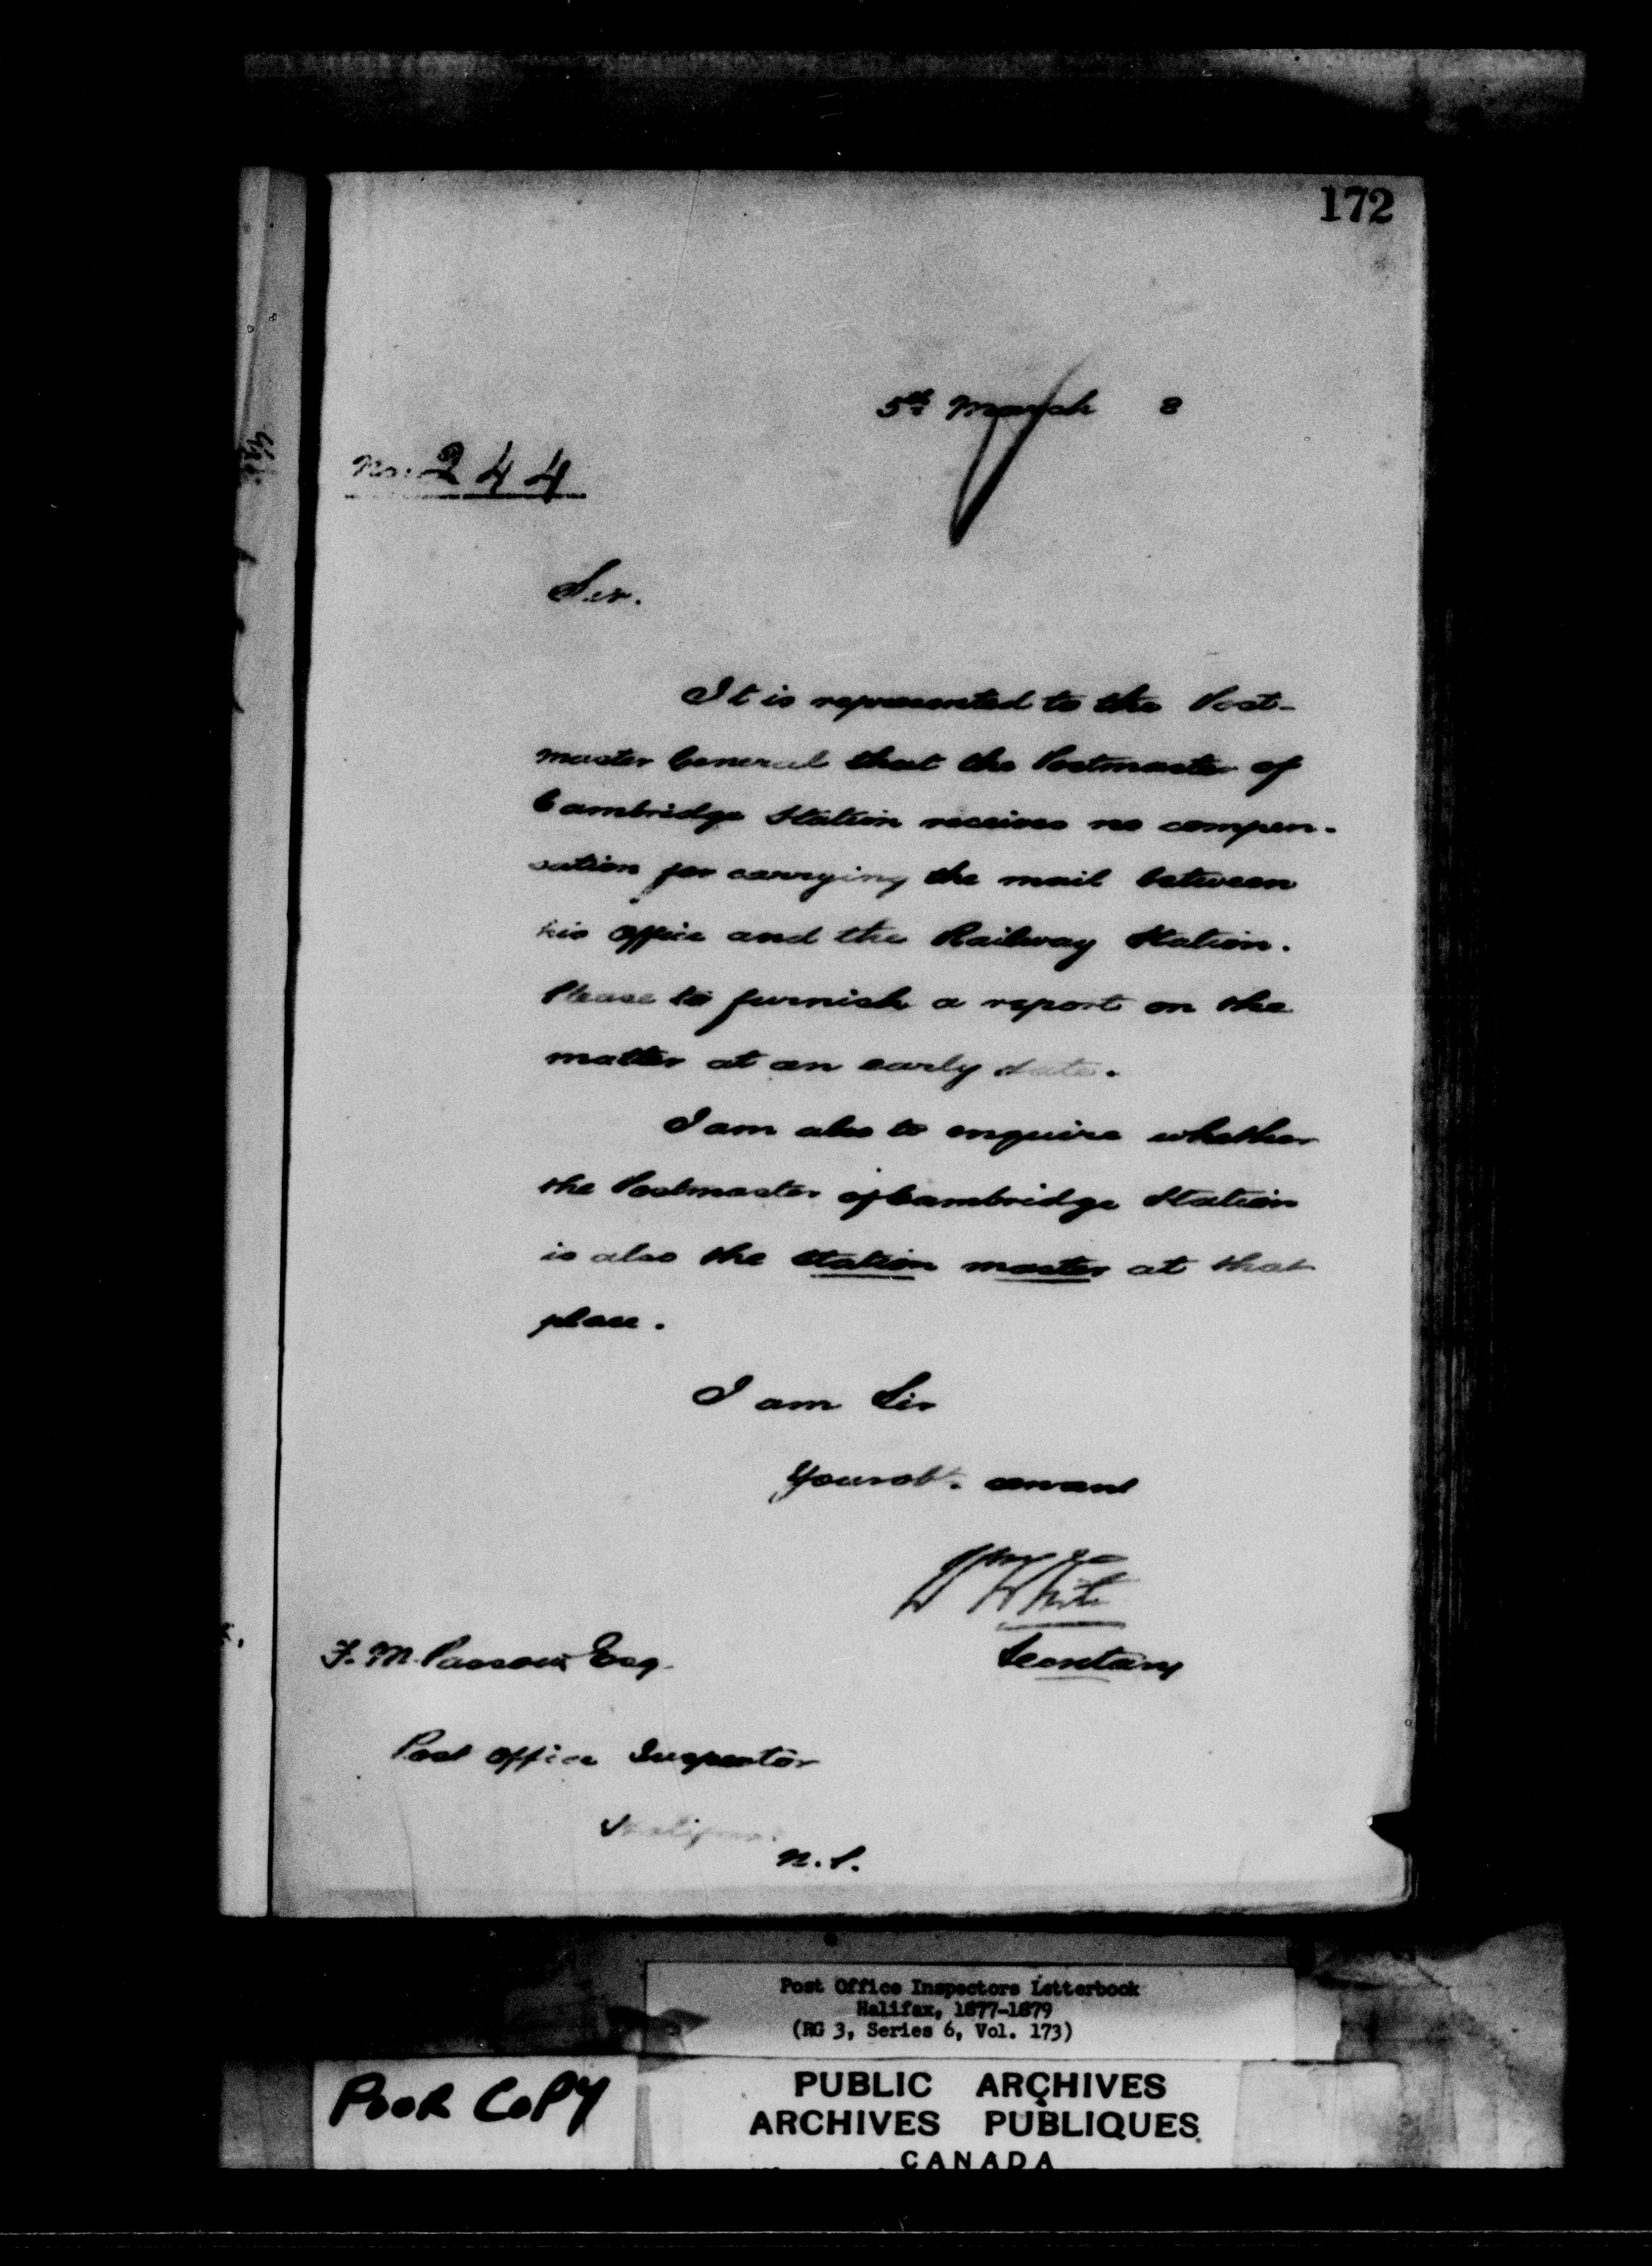 172
5th March 8
No. 244
Sir.
It is represented to the Post-
master General that the Postmaster of
Cambridge Station receives no compen-
sation for carrying the mail between
his Office and the Railway Station.
Please to furnish a report on the
matter at an early date.
I am also to enquire whether
the Postmaster of Cambridge Station
is also the station master at that
place.
I am Sir
Your obt. servant
White
Secretary
F. M. Passow Esq.
Post Office Inspector
Halifax.
N.S.
Post Office Inspectors Letterbook
Halifax, 1877-1879
(RG 3, Series 6, Vol. 173)
POOR COPY
PUBLIC ARCHIVES
ARCHIVES PUBLIQUES
CANADA